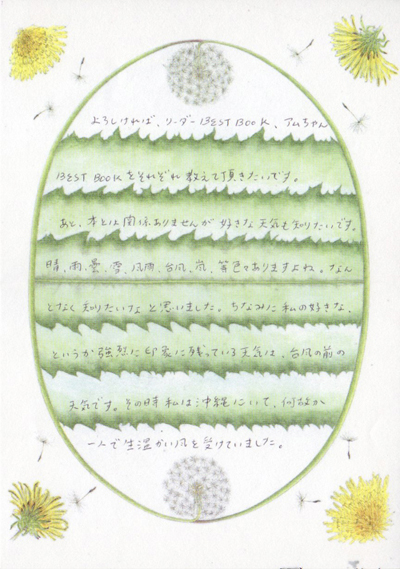 よろしければ、リーダーBEST BOOK、アムちゃん
BEST BOOKをそれぞれ教えて頂きたいです。
あと、本とは関係ありませんが好きな天気も知りたいです。
晴、雨、曇、雪、風雨、台風、嵐、等色々ありますよね。なん
となく知りたいなと思いました。ちなみに私の好きな、
というか強烈に印象に残っている天気は、台風の前の
天気です。その時私は沖縄にいて、何故か
一人で生温かい風を受けていました。